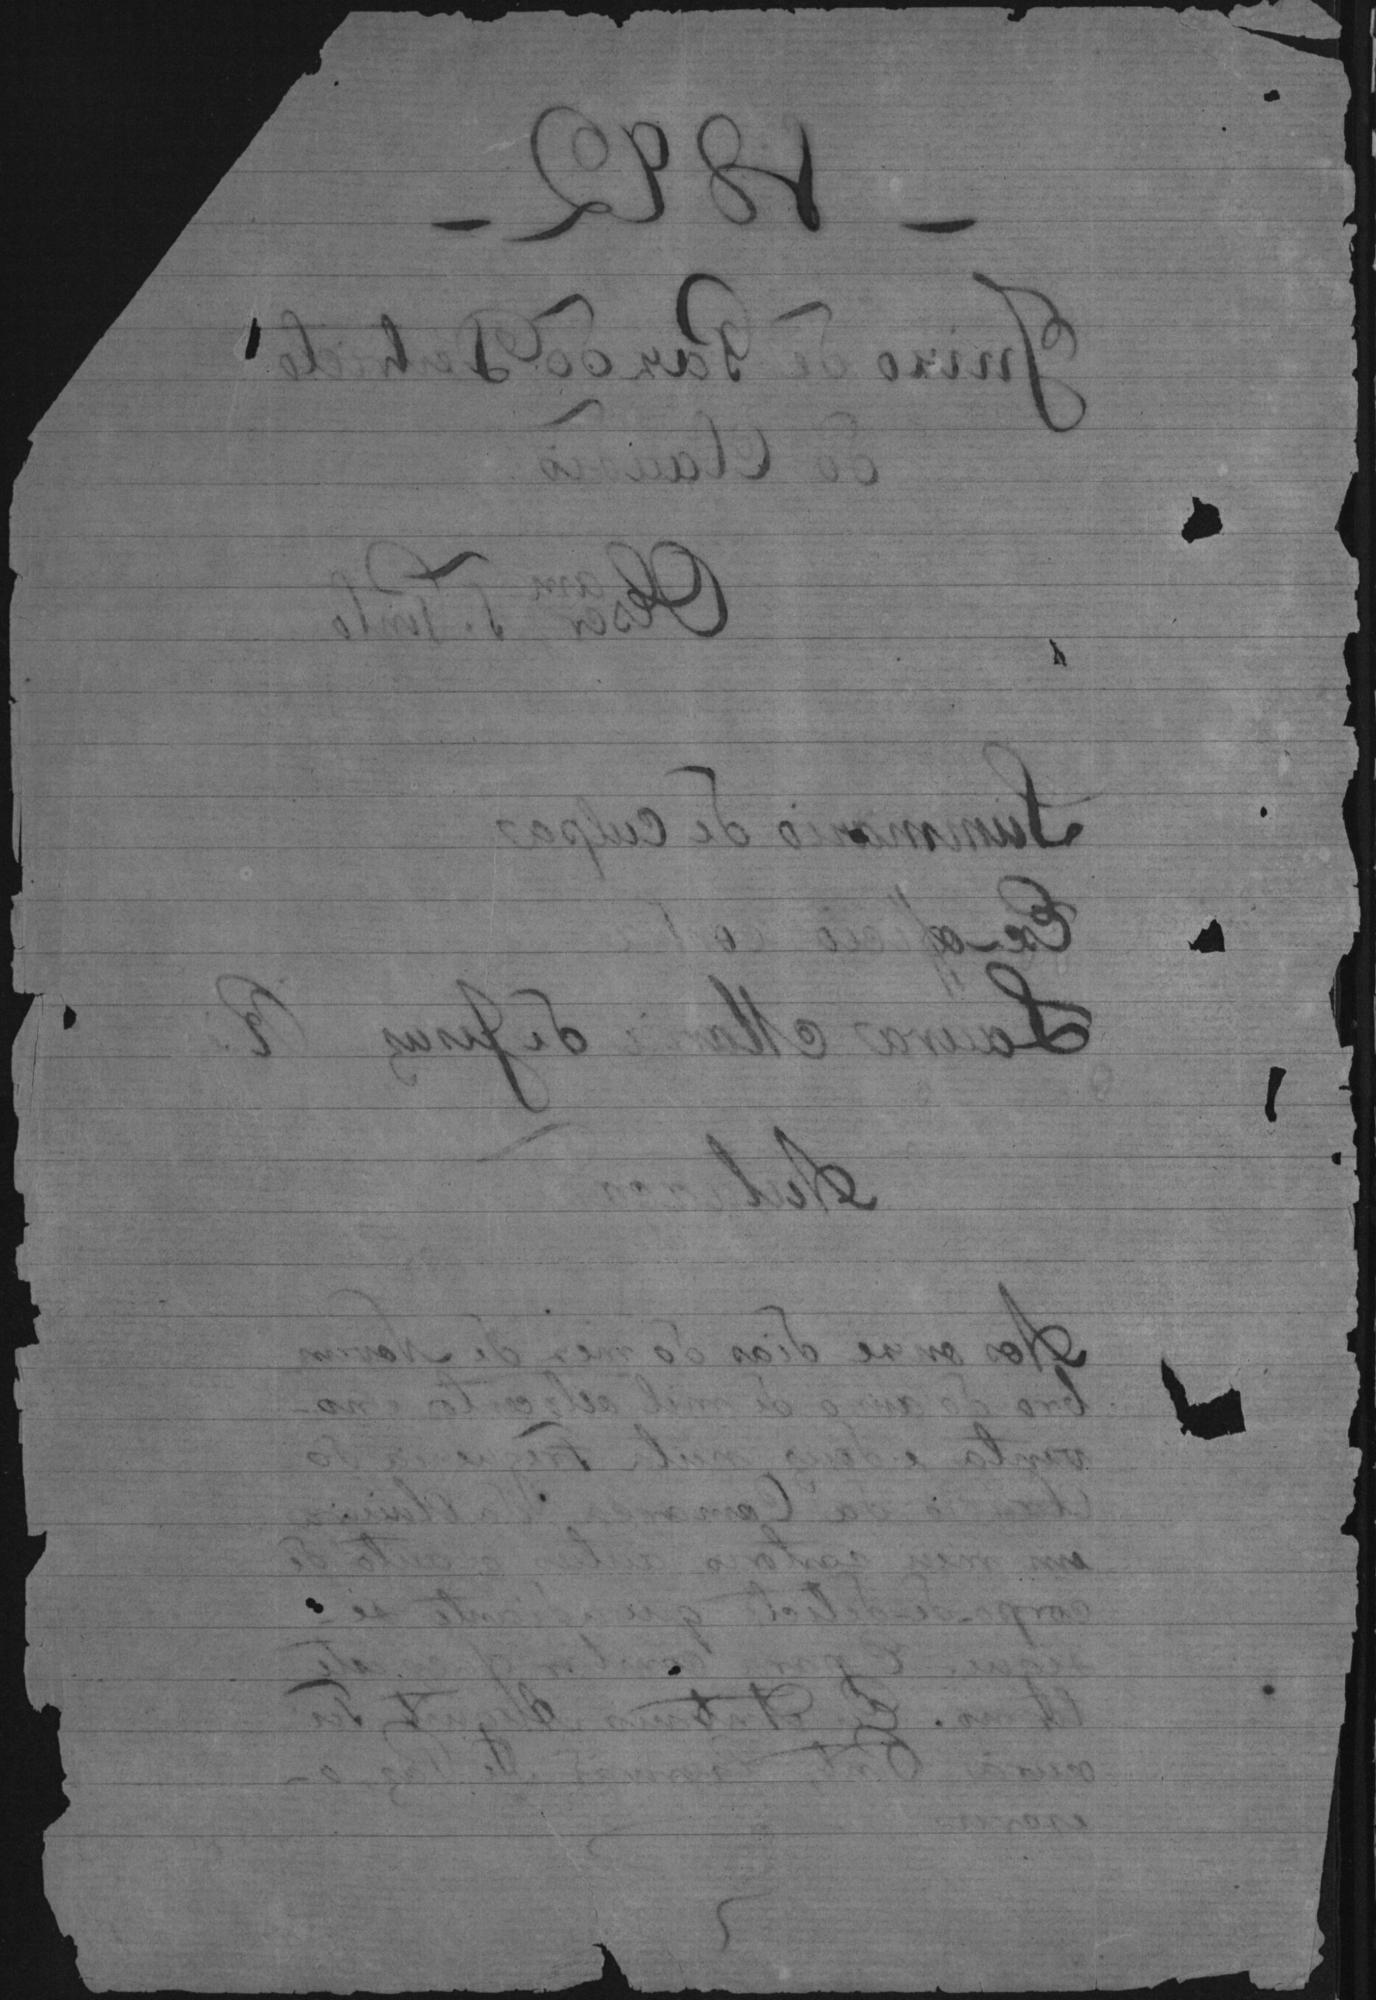 - 1892 -
Juizo de Paz do Districto
do Claudio
Escr.am T. Pinto
Summario de culpa
Ex-officio contra
Laura Maria de Jesus R.
Autuação
Aos onze dias do mez de Novem
bro do anno de mil oitocentos e no-
venta e dous nesta Freguezia do
Claudio da Comarca da Oliveira
em meu cartorio autuo o auto de
corpo de delicto que adiante se-
segue. E para constar faço este
termo. Eu Antonio
escrivão de Paz, o
escrevi